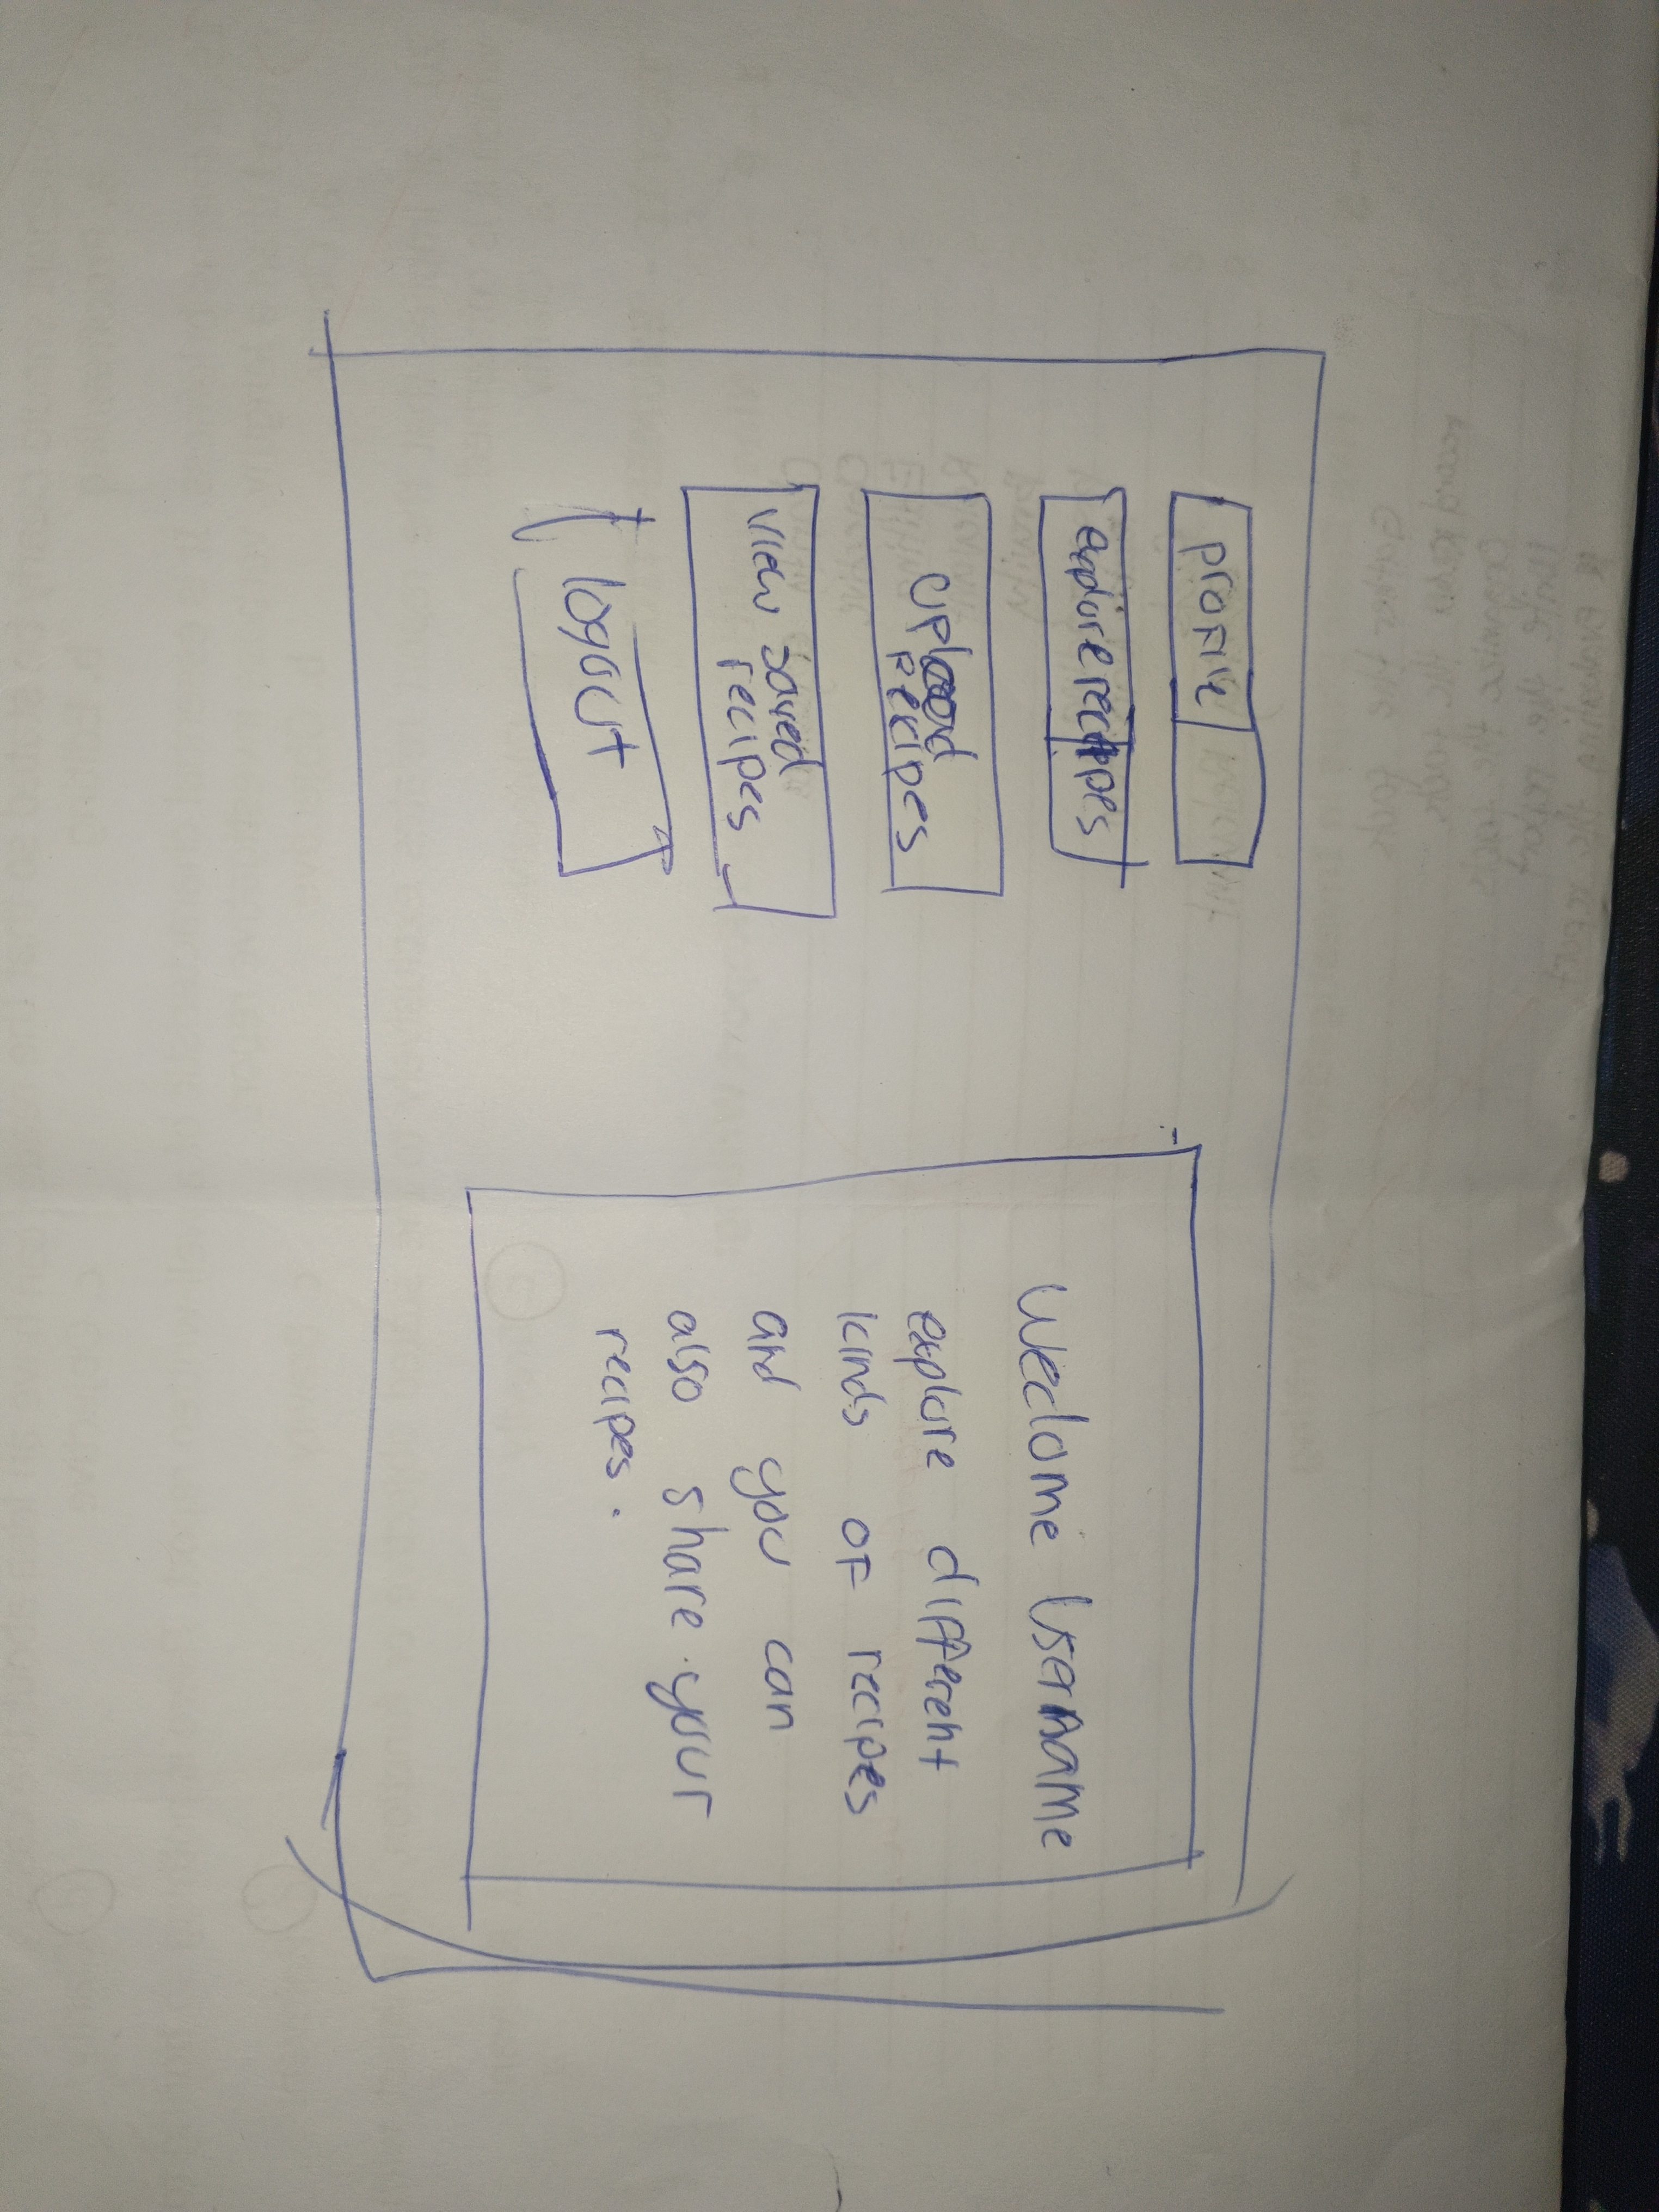 profile
explore recipes
upload
recipes
view saved
recipes
logout
Weclome Username
explore different
kinds of recipes
and you can
also share your
recipes.